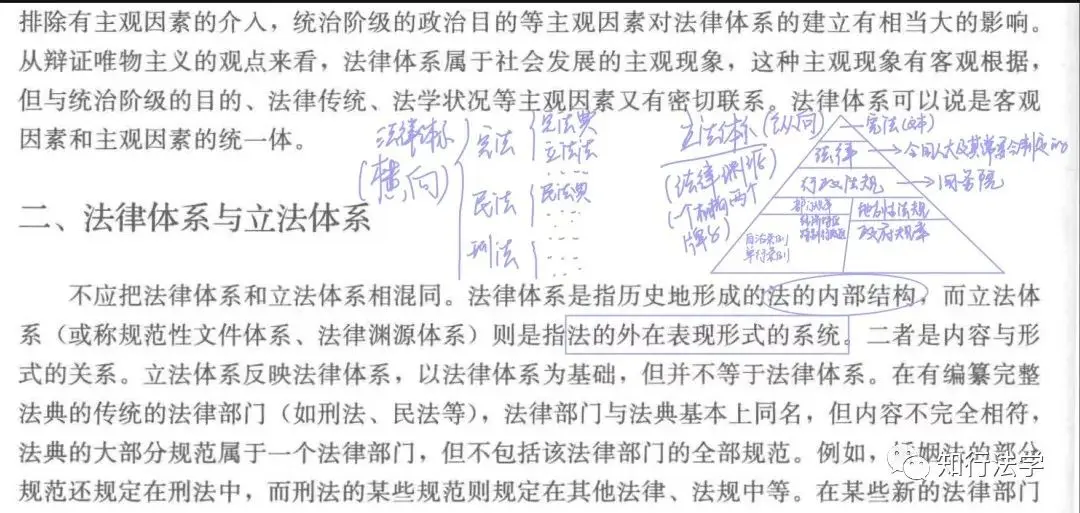 排除有主观因素的介入，统治阶级的政治目的等主观因素对法律体系的建立有相当大的影响。
从辩证唯物主义的观点来看，法律体系属于社会发展的主观现象，这种主观现象有客观根据，
但与统治阶级的目的、法律传统、法学状况等主观因素又有密切联系。法律体系可以说是客观
因素和主观因素的统一体。
法律体系
(横向)
宪法
宪法典
立法法
民法
民法典
刑法
立法体系(纵向)
(法律渊源
一个机构两个
牌子)
宪法
法律
全国人大及其常委会制定的
行政法规
国务院
部门规章
地方性法规
政府规章
自治条例
单行条例
二、法律体系与立法体系
不应把法律体系和立法体系相混同。法律体系是指历史地形成的法的内部结构，而立法体
系（或称规范性文件体系、法律渊源体系）则是指法的外在表现形式的系统。二者是内容与形
式的关系。立法体系反映法律体系，以法律体系为基础，但并不等于法律体系。在有编纂完整
法典的传统的法律部门（如刑法、民法等），法律部门与法典基本上同名，但内容不完全相符，
法典的大部分规范属于一个法律部门，但不包括该法律部门的全部规范。例如，婚姻法的部分
规范还规定在刑法中，而刑法的某些规范则规定在其他法律、法规中等。在某些新的法律部门
知行法学